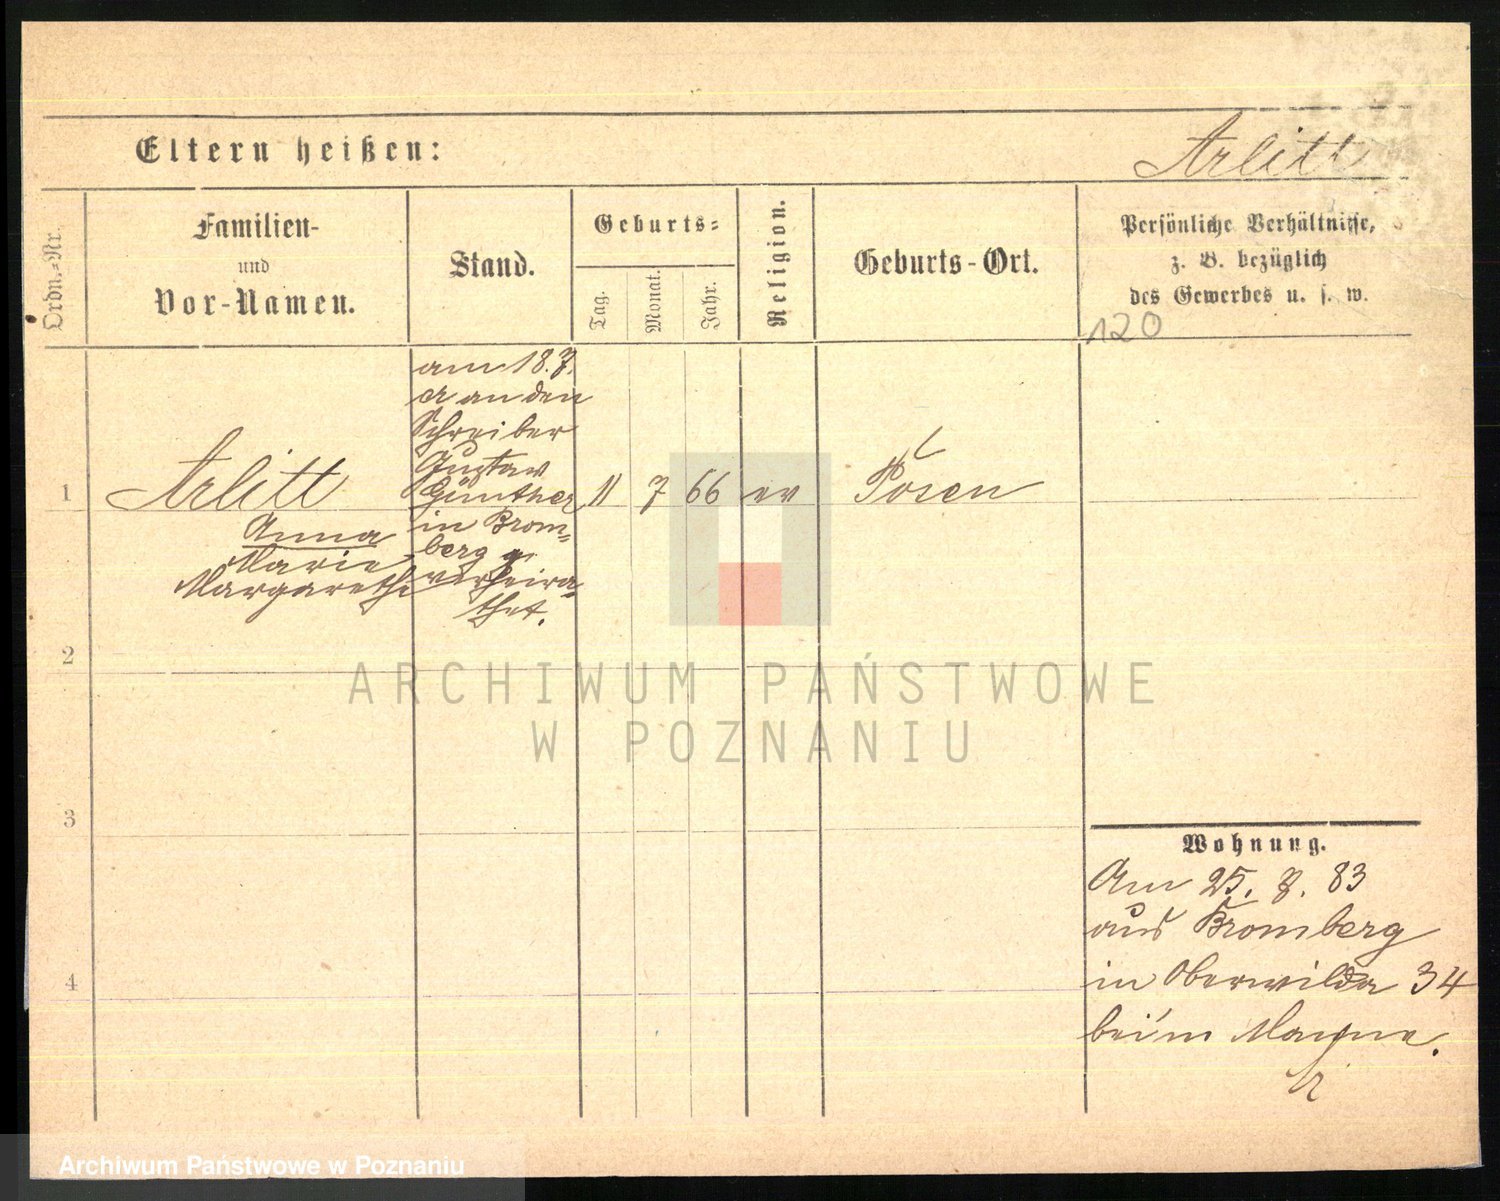 Eltern heißen:
Arlitt
Ordn.-Nr.
Familien-
und
Vor-Namen.
Stand.
Geburts-
Tag.
Monat.
Jahr.
Religion.
Geburts-Ort.
Persönliche Verhältnisse,
z. B. bezüglich
des Gewerbes u. s. w.
120
am 18. 7.
cr an den
Schreiber
Gustav
Günther
in Brom-
berg
verheira-
thet.
1
Arlitt
Anna
Marie
Margarethe
11
7
66
ev
Posen
2
3
4
Wohnung.
Am 25. 8. 83
aus Bromberg
in Oberwilda 34
beim Manne.
ARCHIWUM PAŃSTWOWE
W POZNANIU
Archiwum Państwowe w Poznaniu